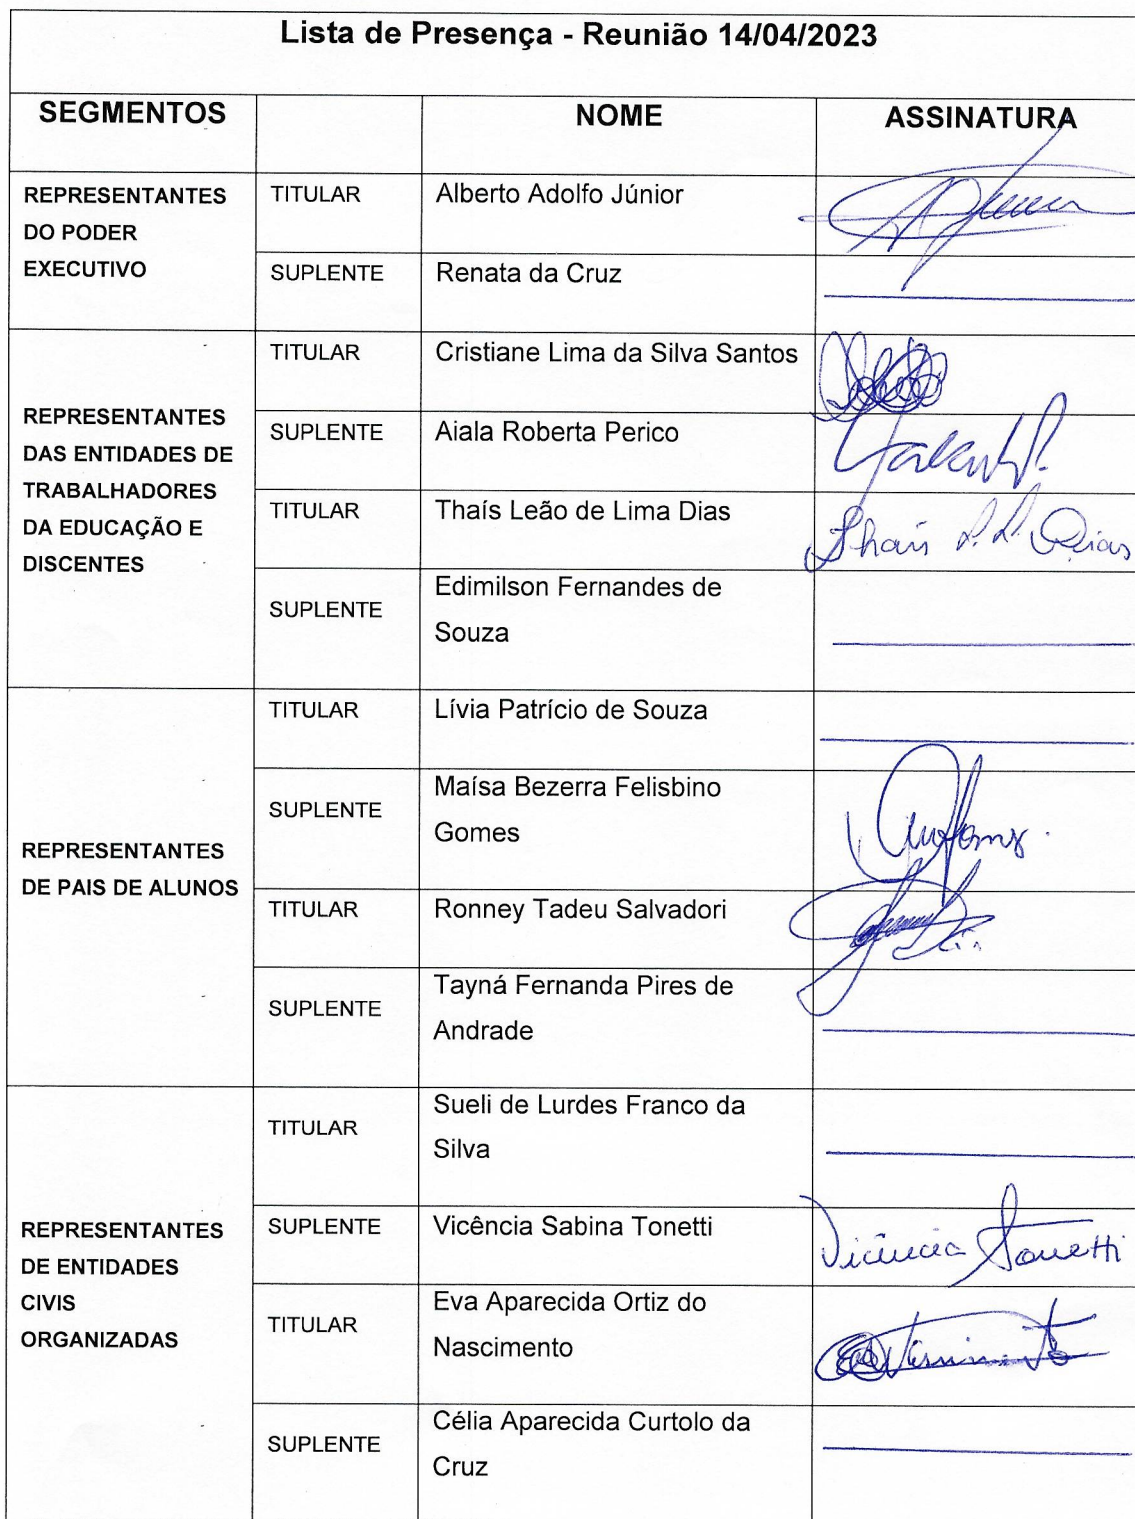 Lista de Presença - Reunião 14/04/2023
SEGMENTOS NOME ASSINATURA
REPRESENTANTES
DO PODER
EXECUTIVO
TITULAR Alberto Adolfo Júnior
SUPLENTE Renata da Cruz
REPRESENTANTES
DAS ENTIDADES DE
TRABALHADORES
DA EDUCAÇÃO E
DISCENTES
TITULAR Cristiane Lima da Silva Santos
SUPLENTE Aiala Roberta Perico
TITULAR Thaís Leão de Lima Dias Thaís L. L. Dias
SUPLENTE Edimilson Fernandes de
Souza
REPRESENTANTES
DE PAIS DE ALUNOS
TITULAR Lívia Patrício de Souza
SUPLENTE Maísa Bezerra Felisbino
Gomes
TITULAR Ronney Tadeu Salvadori
SUPLENTE Tayná Fernanda Pires de
Andrade
REPRESENTANTES
DE ENTIDADES
CIVIS
ORGANIZADAS
TITULAR Sueli de Lurdes Franco da
Silva
SUPLENTE Vicência Sabina Tonetti Vicência Tonetti
TITULAR Eva Aparecida Ortiz do
Nascimento
SUPLENTE Célia Aparecida Curtolo da
Cruz